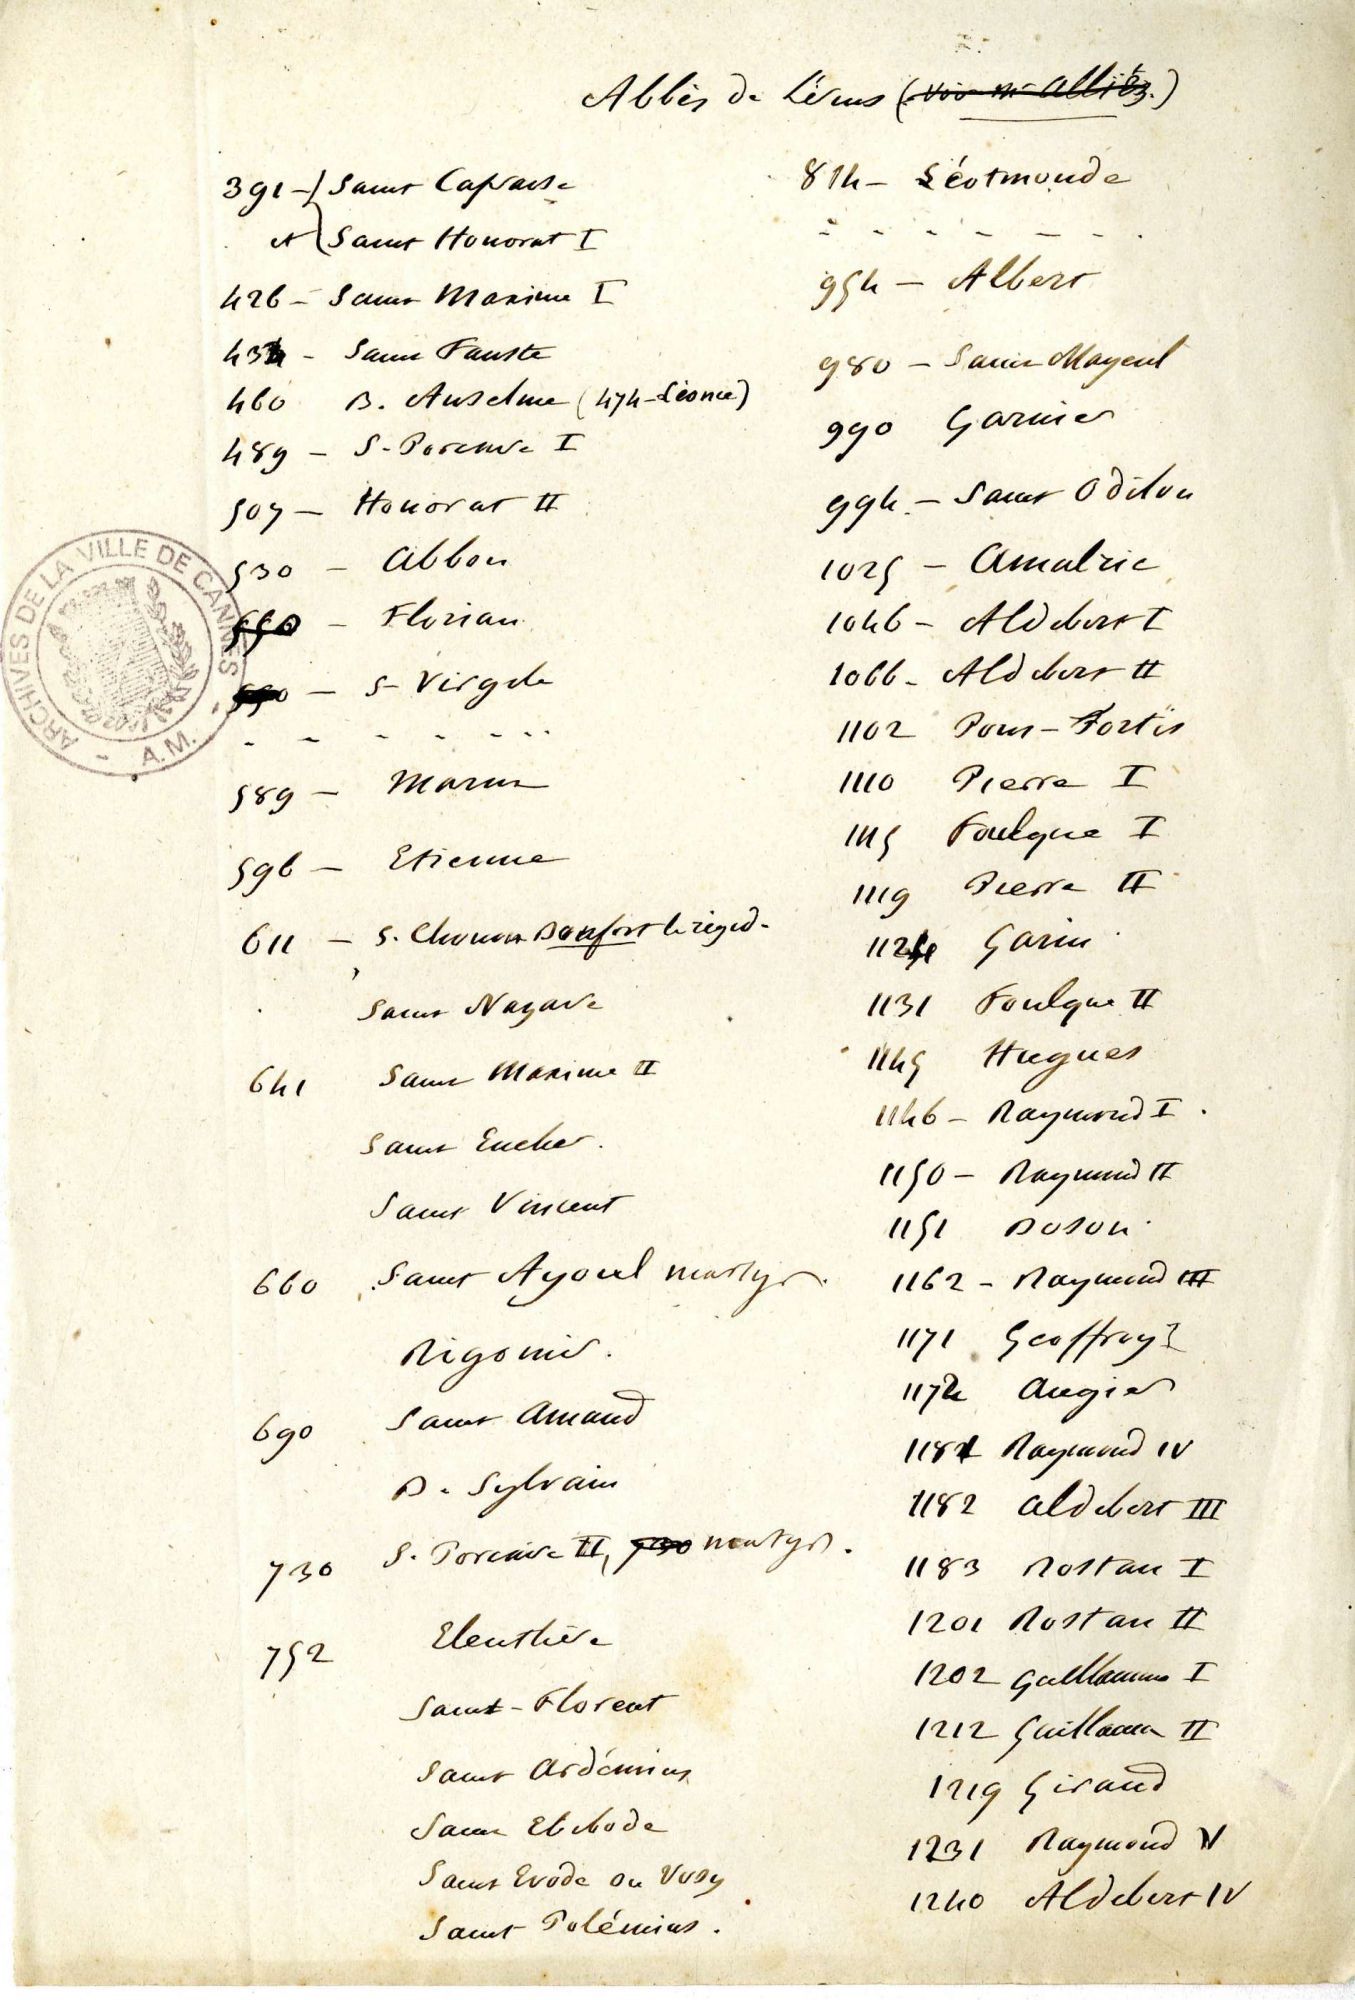 Abbés de Lérins (voir Mr Alliez.)
391 - Saint Caprais
et Saint Honorat I
426 - Saint Maxime I
434 - Saint Fauste
460 B. Anselme (474 - Léonce)
489 - S. Porcaire I
507 - Honorat II
530 - Abbon
550 - Florian
- S. Virgile
- - - - - - - -
589 - Marin
596 - Etienne
611 - S. Chonon Donfort le rigid.
Saint Nazaire
641 Saint Maxime II
Saint Eucher.
Saint Vincent
660 Saint Ayoul martyr.
Rigomir.
690 Saint Amand
B. Sylvain
730 S. Porcaire II, 730 martyr.
752 Eleuthère
Saint - Florent
Saint Ardémius
Saint Ebbode
Saint Evode ou Vosy
Saint Polémius.
814 - Léotmonde
- - - - - - -
954 - Albert
980 - Saint Mayeul
990 Garnier
994 - Saint Odilon
1025 - Amalric
1046 - Aldebert I
1066 - Aldebert II
1102 Pons - Fortis
1110 Pierre I
1115 Foulque I
1119 Pierre II
Garin
1131 Foulque II
1145 Hugues
1146 - Raymond I.
1150 - Raymond II
1151 Boson
1162 - Raymond III
1171 Geoffroy
1172 Augier
1181 Raymond IV
1182 Aldebert III
1183 Rostan I
1201 Rostan II
1202 Guillaume I
1212 Guillaume II
1219 Giraud
1231 Raymond V
1240 Aldebert IV
ARCHIVES DE LA VILLE DE CANNES
- A.M. -